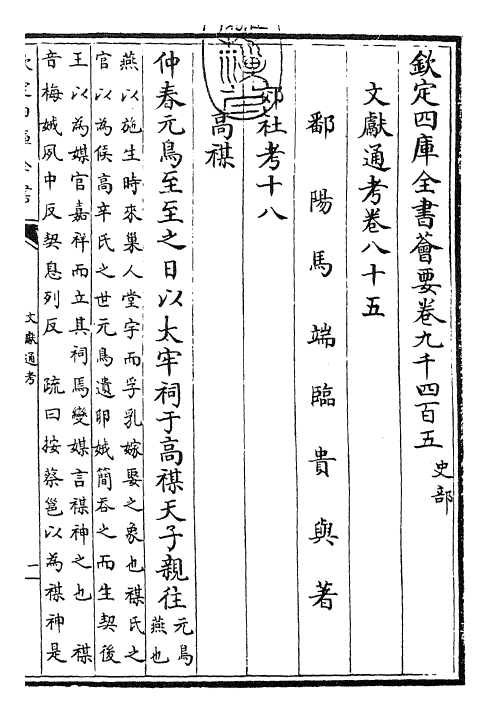 欽定四庫全書薈要卷九千四百五 史部
文獻通考卷八十五
鄱陽馬端臨貴與著
郊社考十八
高禖
仲春元鳥至至之日以太牢祠于高禖天子親往
元鳥
燕也
燕以施生時來巢人堂宇而孚乳嫁娶之象也禖氏之
官以為候高辛氏之世元鳥遺卵娀簡吞之而生契後
王以為媒官嘉祥而立其祠焉變媒言禖神之也 禖
音梅娀夙中反契息列反 疏曰按蔡邕以為禖神是
文獻通考
一